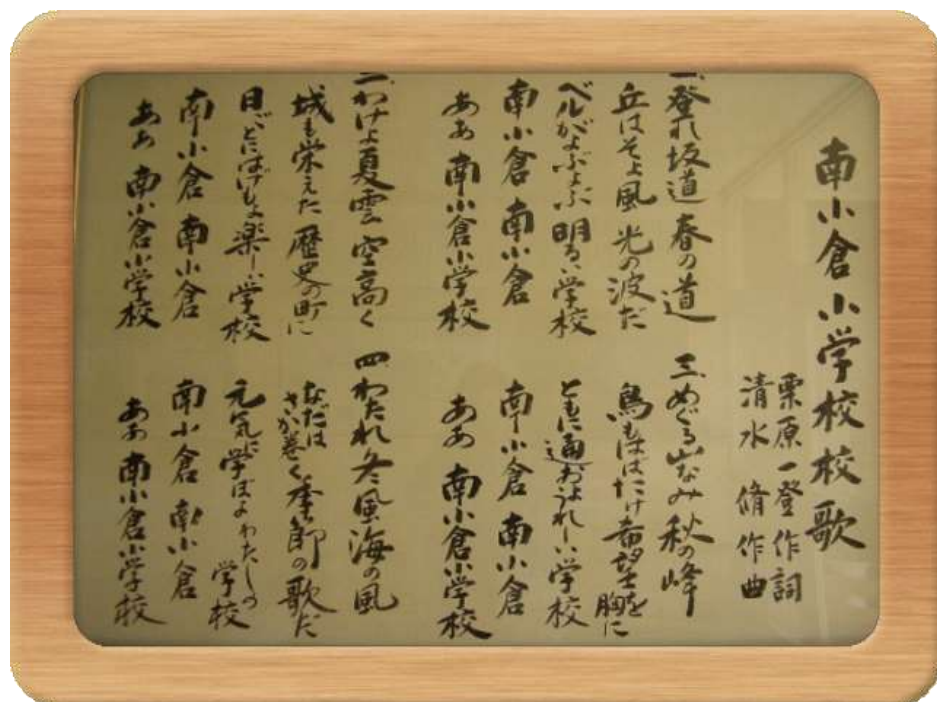 南小倉小学校校歌
栗原一登作詞
清水脩作曲
一、登れ坂道 春の道
丘はそよ風 光の波だ
ベルがよぶよぶ 明るい学校
南小倉 南小倉
ああ 南小倉小学校
二、わけよ夏雲 空高く
城も栄えた 歴史の町に
日ごとにはげむよ 楽しい学校
南小倉 南小倉
ああ 南小倉小学校
三、めぐる山なみ 秋の峰
鳥もはばたけ 希望を胸に
ともに通およ うれしい学校
南小倉 南小倉
ああ 南小倉小学校
四、わたれ冬風 海の風
なだは
さか巻く 季節の歌だ
元気に学ぼよ わたしの
学校
南小倉 南小倉
ああ 南小倉小学校